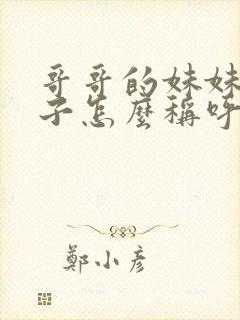 哥哥的妹妹
子怎麼稱呼
鄭小彥